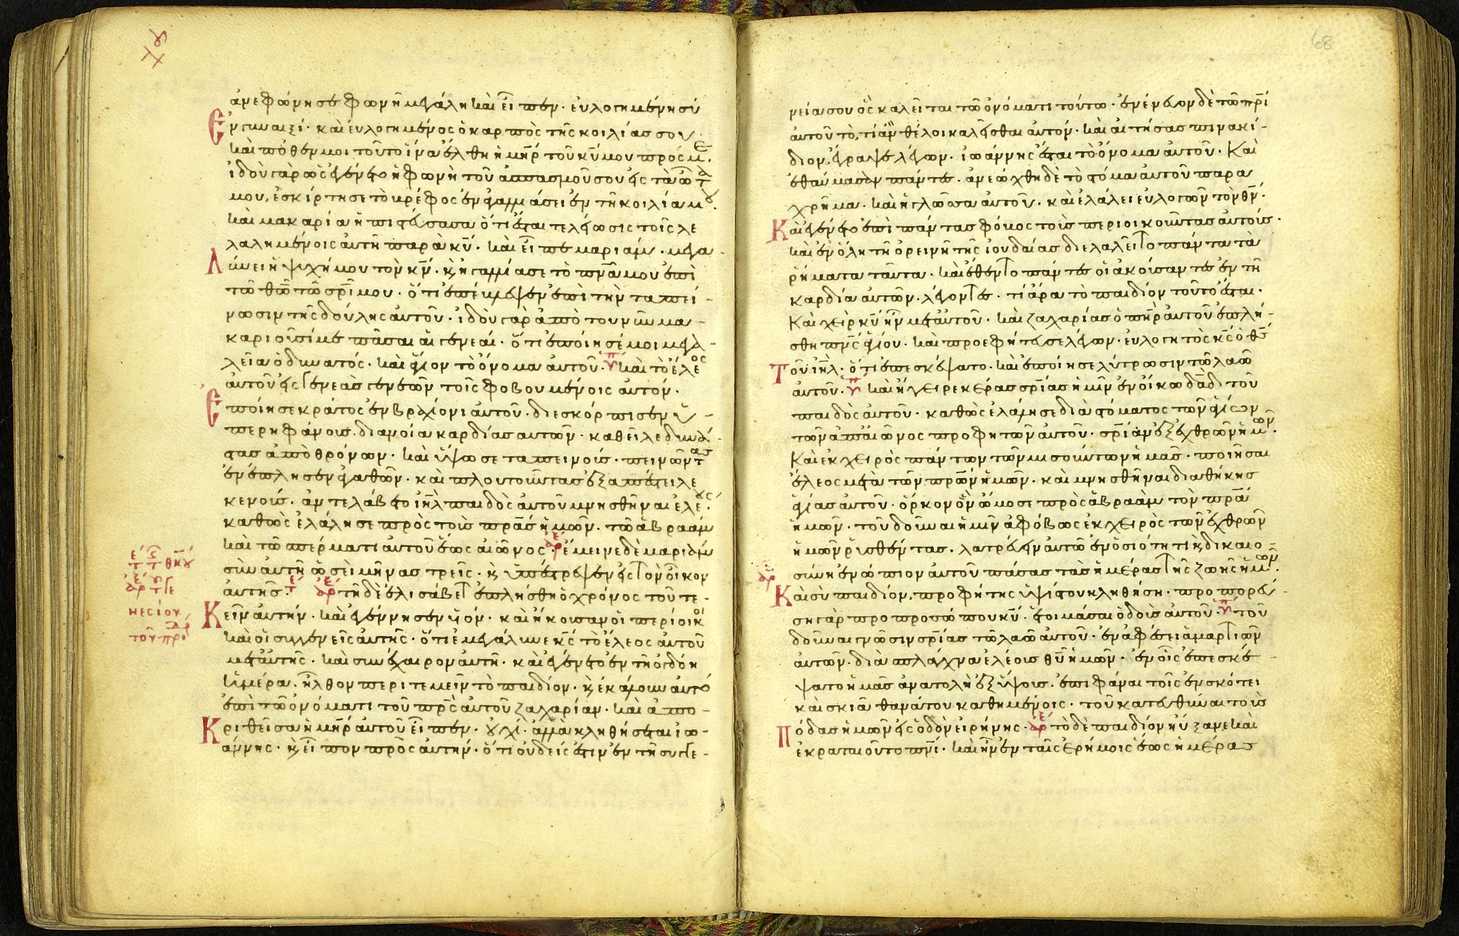 ἀνεφώνησε φωνῆ μεγάλη καὶ εἶπεν· εὐλογημένη σὺ
ἐν γυναιξί· καὶ εὐλογημένος ὁ καρπὸς τῆς κοιλίας σου·
καὶ πόθεν μοι τοῦτο ἵνα ἔλθη ἡ μηρ τοῦ κυ μου πρός με·
ἰδοὺ γὰρ ὡς ἐγένετο ἡ φωνὴ τοῦ ἀσπασμοῦ σου εἰς τὰ ὦτα
μου, ἐσκίρτησε τὸ βρέφος ἐν ἀγαλλιάσει ἐν τῆ κοιλία μου·
καὶ μακαρία ἡ πιστεύσασα ὅτι ἔσται τελείωσις τοῖς λε
λαλημένοις αὐτῆ παρὰ κυ· καὶ εἶπε μαριάμ· μεγα
λύνει ἡ ψυχή μου τὸν κν· κ ἠγαλλίασε τὸ πνα μου ἐπὶ
τῶ θῶ τῶ σρι μου· ὅτι ἐπέβλεψεν ἐπὶ τὴν ταπεί
νωσιν τῆς δούλης αὐτοῦ· ἰδοὺ γὰρ ἀπὸ τοῦ νῦν μα
καριοῦσί με πᾶσαι αἱ γενεαί· ὅτι ἐποίησέ μοι μεγα
λεῖα ὁ δυνατός· καὶ ἅγιον τὸ ὄνομα αὐτοῦ· καὶ τὸ ἔλεος
αὐτοῦ εἰς γενεὰς γενεῶν τοῖς φοβουμένοις αὐτόν·
Ἐποίησε κράτος ἐν βραχίονι αὐτοῦ· διεσκόρπισεν ὑ
περηφάνους διανοία καρδίας αὐτῶν· καθεῖλε δυνά
στας ἀπὸ θρόνων· καὶ ὕψωσε ταπεινούς· πεινῶντας
ἐνέπλησεν ἀγαθῶν· καὶ πλουτοῦντας ἐξαπέστειλε
κενούς· ἀντελάβετο ιηλ παιδὸς αὐτοῦ μνησθῆναι ἐλέους·
καθὼς ἐλάλησε πρὸς τοὺς πρας ἡμῶν· τῶ ἀβραὰμ
καὶ τῶ σπέρματι αὐτοῦ ἕως αἰῶνος· ἔμεινε δὲ μαριὰμ
σὺν αὐτῆ ὡσεὶ μῆνας τρεῖς· κ ὑπέστρεψεν εἰς τὸν οἶκον
αὐτῆς· τῆ δὲ ἐλισάβετ ἐπλήσθη ὁ χρόνος τοῦ τε
κεῖν αὐτήν· καὶ ἐγέννησεν υἱόν· καὶ ἤκουσαν οἱ περίοικοι
καὶ οἱ συγγενεῖς αὐτῆς· ὅτι ἐμεγάλυνε κς τὸ ἔλεος αὐτοῦ
μετ' αὐτῆς· καὶ συνέχαιρον αὐτῆ· καὶ ἐγένετο ἐν τῆ ὀγδόη
ἡμέρα, ἦλθον περιτεμεῖν τὸ παιδίον· κ ἐκάλουν αὐτὸ
ἐπὶ τῶ ὀνόματι τοῦ πρς αὐτοῦ ζαχαρίαν· καὶ ἀπο
κριθεῖσα ἡ μηρ αὐτοῦ εἶπεν· οὐχί· ἀλλὰ κληθήσεται ἰω
άννης· κ εἶπον πρὸς αὐτήν· ὅτι οὐδείς ἐστιν ἐν τῆ συγγε
68
νεία σου ὃς καλεῖται τῶ ὀνόματι τούτω· ἐνένευον δὲ τῶ πρι
αὐτοῦ τό, τί ἂν θέλοι καλεῖσθαι αὐτόν· καὶ αἰτήσας πινακί
διον, ἔγραψε λέγων· ἰωάννης ἔσται τὸ ὄνομα αὐτοῦ· Καὶ
ἐθαύμασαν πάντες. ἀνεώχθη δὲ τὸ στόμα αὐτοῦ παρα
χρῆμα· καὶ ἡ γλῶσσα αὐτοῦ· καὶ ἐλάλει εὐλογῶν τὸν θν·
Καὶ ἐγένετο ἐπὶ πάντας φόβος τοὺς περιοικοῦντας αὐτούς·
καὶ ἐν ὅλη τῆ ὀρεινῆ τῆς ἰουδαίας διελαλεῖτο πάντα τὰ
ῥήματα ταῦτα· καὶ ἔθεντο πάντες οἱ ἀκούσαντες ἐν τῆ
καρδία αὐτῶν· λέγοντες· τί ἄρα τὸ παιδίον τοῦτο ἔσται·
Καὶ χεὶρ κυ ἦν μετ' αὐτοῦ· καὶ ζαχαρίας ὁ πηρ αὐτοῦ ἐπλή
σθη πνς ἁγίου· καὶ προεφήτευσε λέγων· εὐλογητὸς κς ὁ θς
Τοῦ ιηλ· ὅτι ἐπεσκέψατο· καὶ ἐποίησε λύτρωσιν τῶ λαῶ
αὐτοῦ· καὶ ἤγειρε κέρας σρίας ἡμῖν ἐν οἴκω δαδ τοῦ
παιδὸς αὐτοῦ· καθὼς ἐλάλησε διὰ στόματος τῶν ἁγίων
τῶν ἀπ' αἰῶνος προφητῶν αὐτοῦ· σρίαν ἐξ ἐχθρῶν ἡμῶν·
Καὶ ἐκ χειρὸς πάντων τῶν μισούντων ἡμᾶς· ποιῆσαι
ἔλεος μετὰ τῶν πρων ἡμῶν· καὶ μνησθῆναι διαθήκης
ἁγίας αὐτοῦ· ὅρκον ὃν ὤμοσε πρὸς ἀβραὰμ τὸν πρα
ἡμῶν· τοῦ δοῦναι ἡμῖν ἀφόβως ἐκ χειρὸς τῶν ἐχθρῶν
ἡμῶν ῥυσθέντας· λατρεύειν αὐτῶ ἐν ὁσιότητι κ δικαιο
σύνη ἐνώπιον αὐτοῦ πάσας τὰς ἡμέρας τῆς ζωῆς ἡμῶν·
Καὶ σὺ παιδίον, προφήτης ὑψίστου κληθήση· προπορεύ
ση γὰρ πρὸ προσώπου κυ ἑτοιμάσαι ὁδοὺς αὐτοῦ· τοῦ
δοῦναι γνῶσιν σρίας τῶ λαῶ αὐτοῦ· ἐν ἀφέσει ἁμαρτιῶν
αὐτῶν· διὰ σπλάχνα ἐλέους θυ ἡμῶν· ἐν οἷς ἐπεσκέ
ψατο ἡμᾶς ἀνατολὴ ἐξ ὕψους· ἐπιφᾶναι τοῖς ἐν σκότει
καὶ σκιᾶ θανάτου καθημένοις· τοῦ κατευθῦναι τοὺς
πόδας ἡμῶν εἰς ὁδὸν εἰρήνης· τὸ δὲ παιδίον ηὔξανε καὶ
ἐκραταιοῦτο πνι· καὶ ἦν ἐν ταῖς ἐρήμοις ἕως ἡμέρας